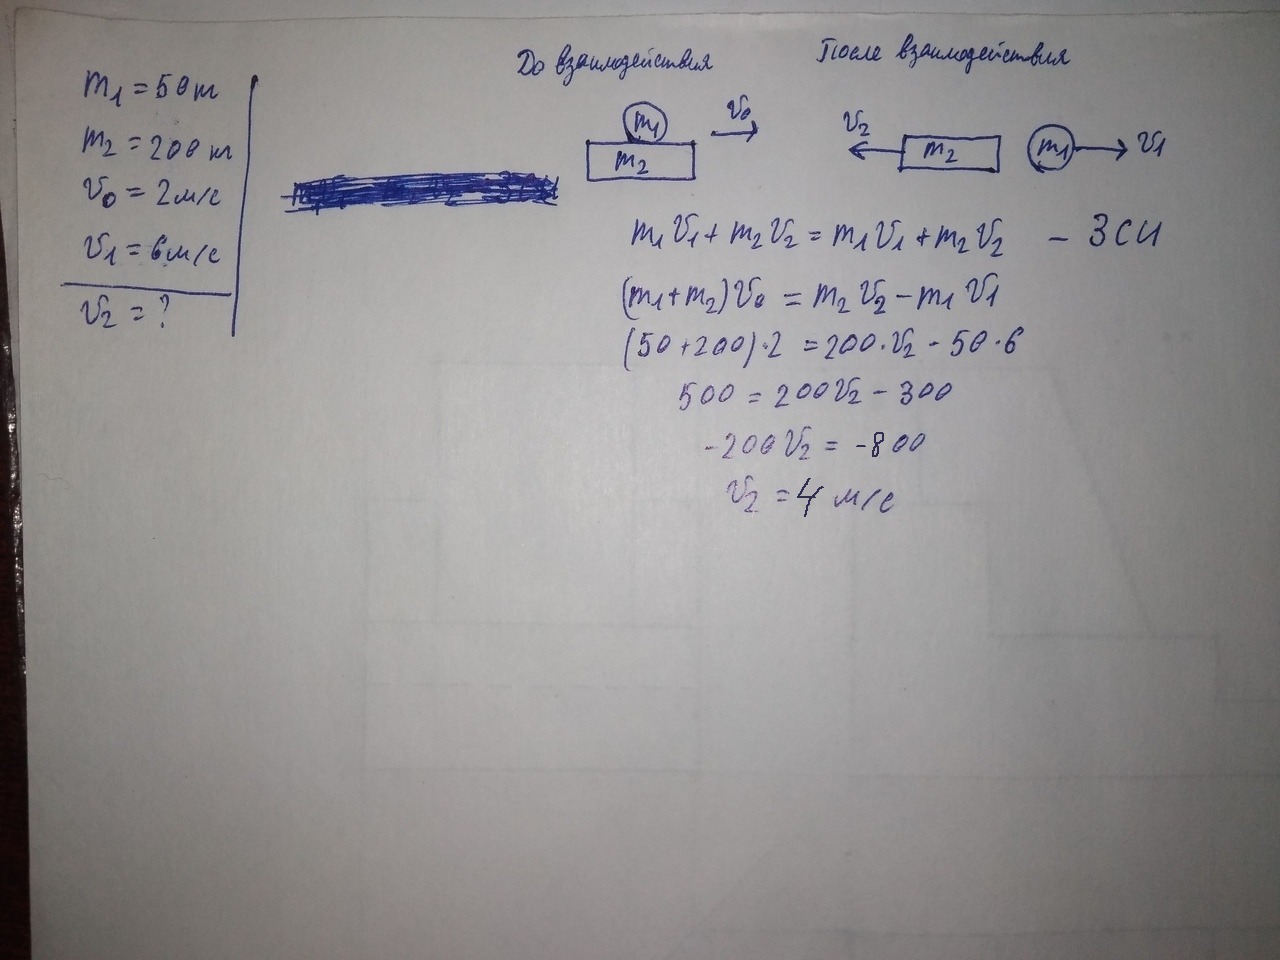 m1 = 50 кг
m2 = 200 кг
v0 = 2 м/с
v1 = 6 м/с
v2 = ?
До взаимодействия
После взаимодействия
m1
m2
v0
v2
m2
m1
v1
m1v1 + m2v2 = m1v1 + m2v2 - ЗСИ
(m1+m2)v0 = m2v2 - m1v1
(50+200)·2 = 200·v2 - 50·6
500 = 200v2 - 300
-200v2 = -800
v2 = 4 м/с